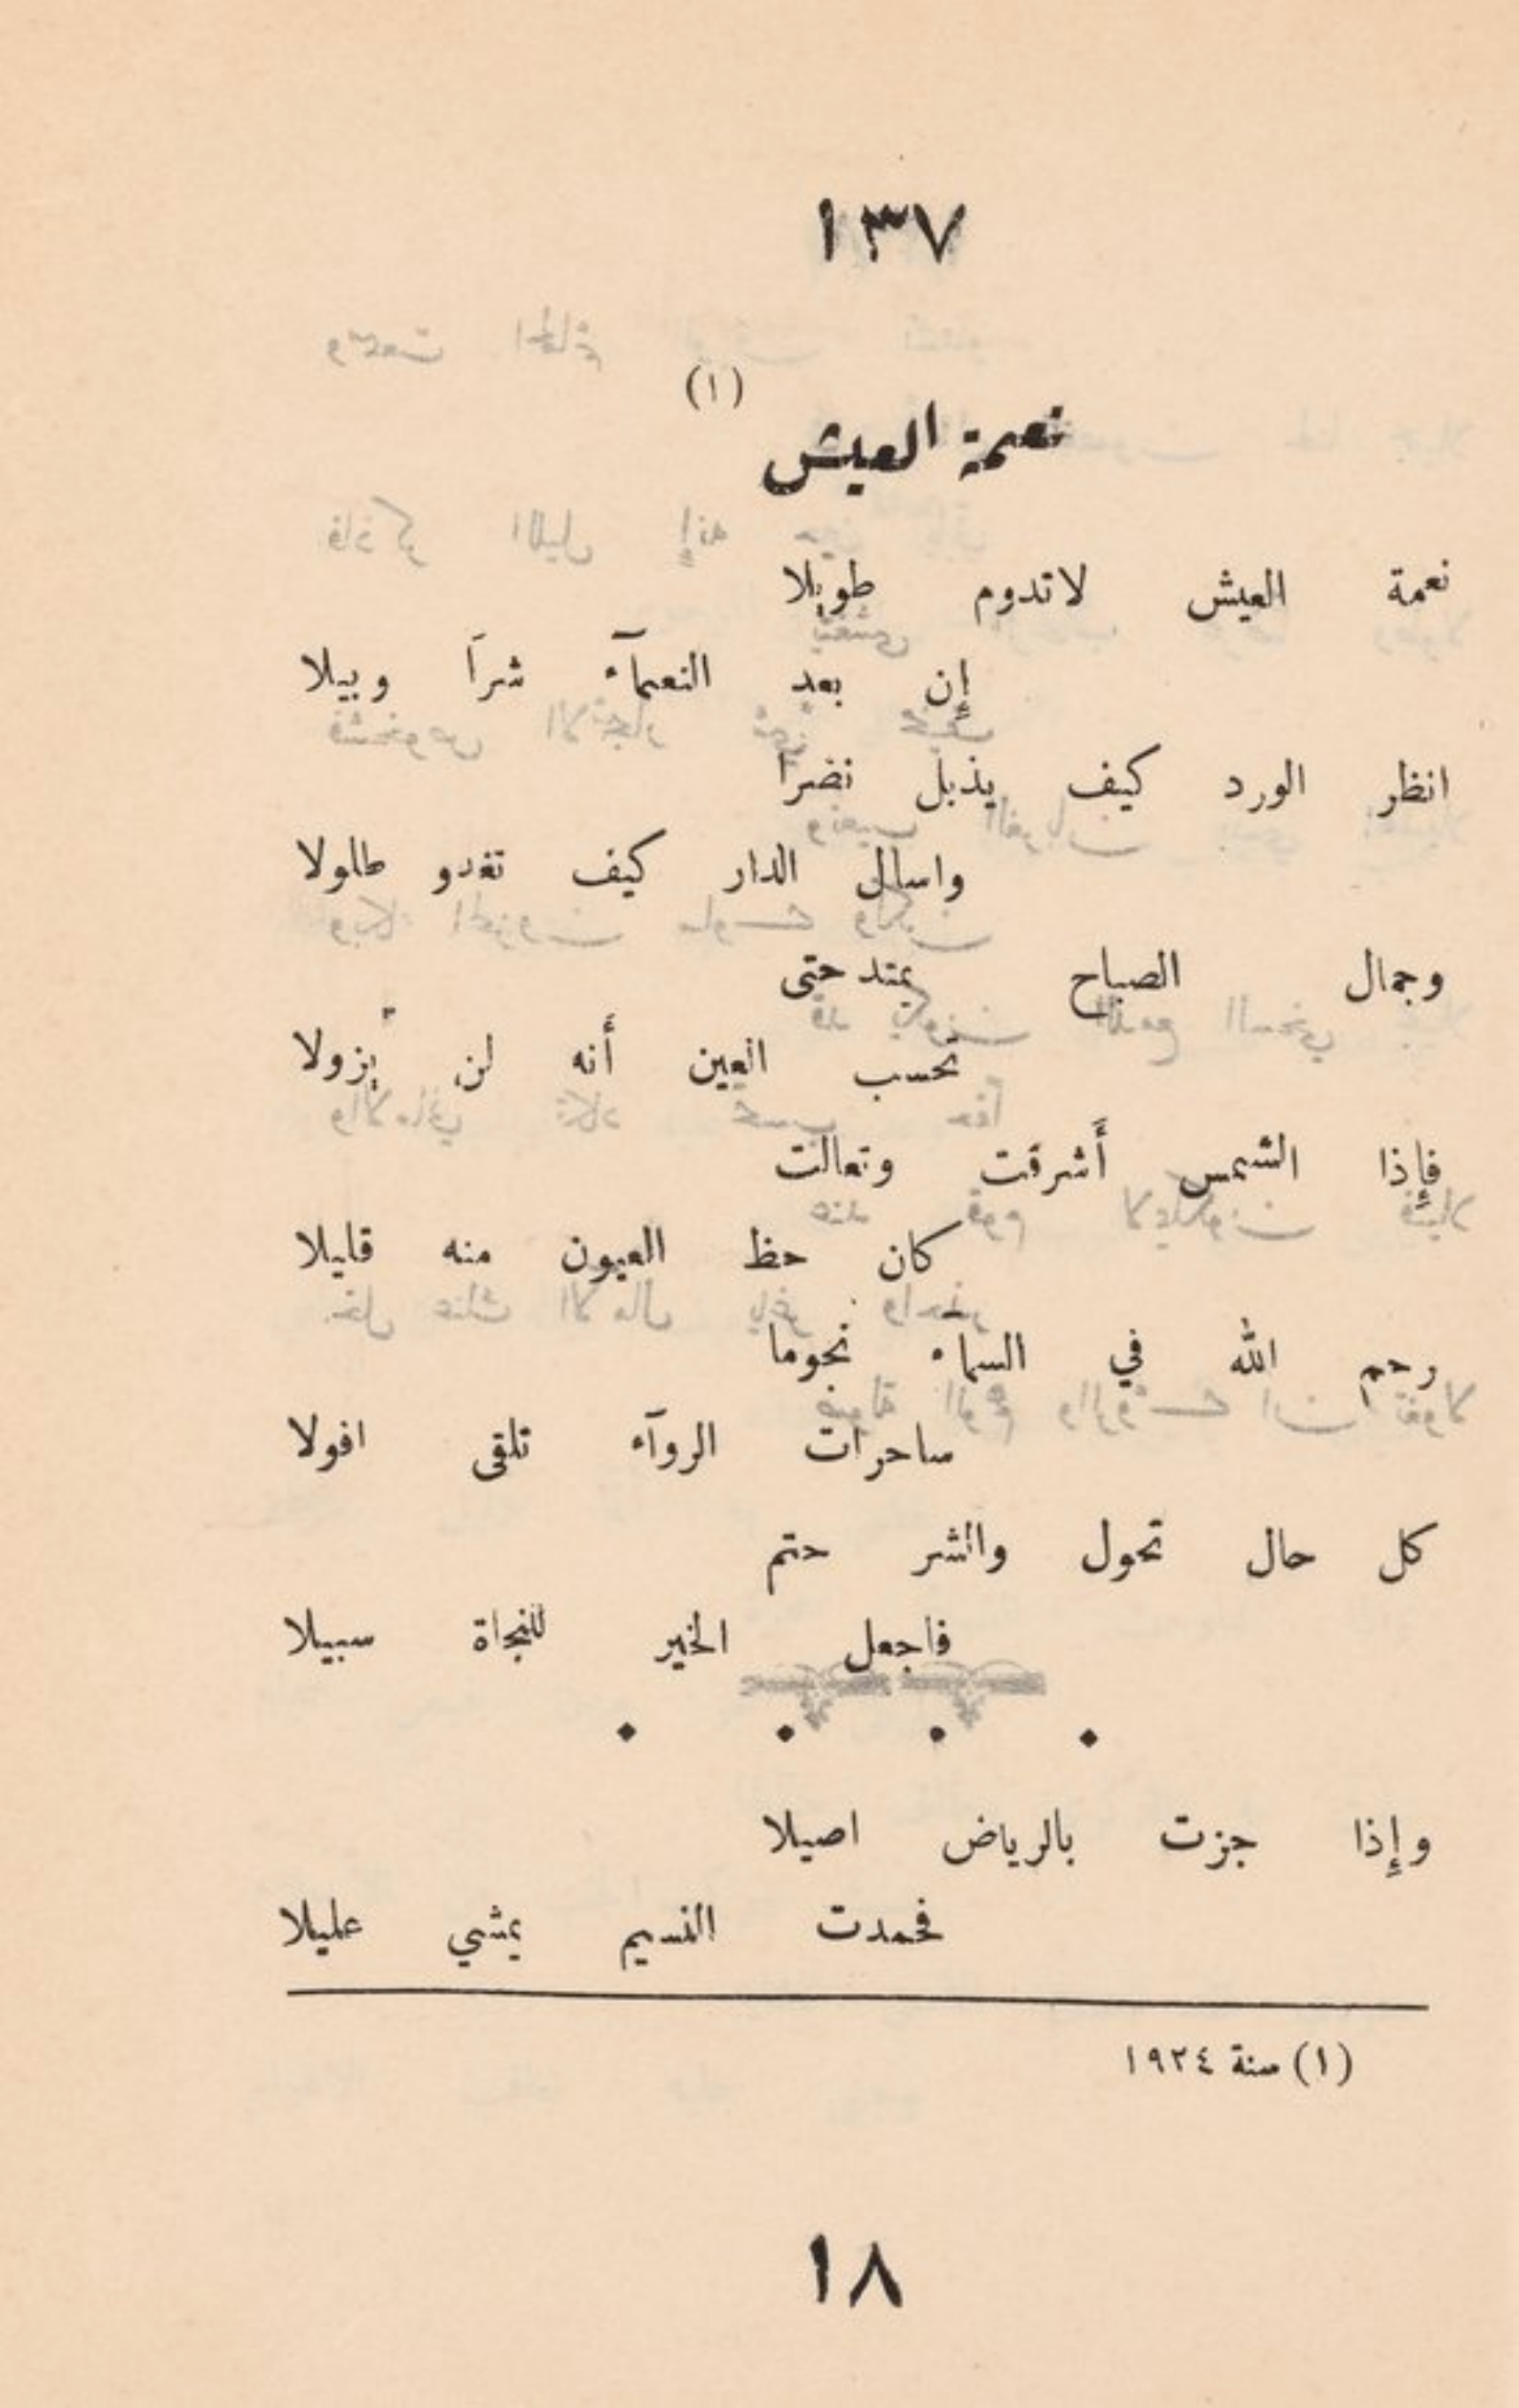 ١٣٧
نعمة العيش (١)
نعمة العيش لاتدوم طويلا
إن بعد النعمآء شراً وبيلا
انظر الورد كيف يذبل نضرا
واسال الدار كيف تغدو طلولا
وجمال الصباح يمتد حتى
تحسب العين أنه لن يزولا
فإذا الشمس أشرقت وتعالت
كان حظ العيون منه قليلا
رحم الله في السماء نجوما
ساحرات الروآء تلقى افولا
كل حال تحول والشر حتم
فاجعل الخير للنجاة سبيلا
وإذا جزت بالرياض اصيلا
فحمدت النسيم يمشي عليلا
(١) سنة ١٩٢٤
١٨